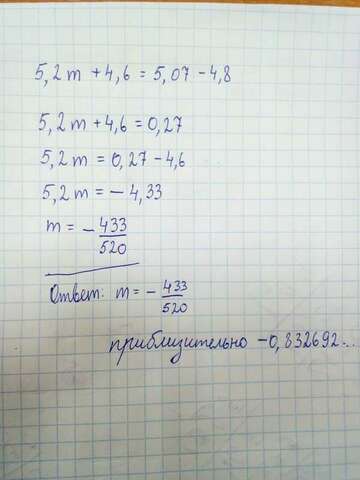 5,2m + 4,6 = 5,07 - 4,8
5,2m + 4,6 = 0,27
5,2m = 0,27 - 4,6
5,2m = - 4,33
m = - 433/520
Ответ: m = - 433/520
приблизительно -0,832692...